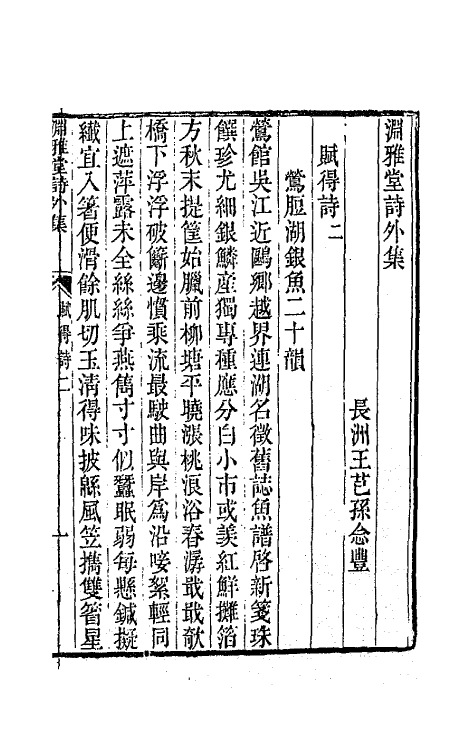 淵雅堂詩外集
長洲王芑孫念豐
賦得詩二
鶯脰湖銀魚二十韻
鶯館吳江近鷗鄉越界連湖名徵舊誌魚譜啓新箋珠
饌珍尤細銀鱗產獨專種應分白小市或羨紅鮮攤箔
方秋末提筐始臘前柳塘平曉漲桃浪浴春潺戢戢欹
橋下浮浮破籪邊慣乘流最駛曲與岸爲沿唼絮輕同
上遮萍露未全絲絲爭燕雋寸寸似蠶眠弱每懸鍼擬
纖宜入箸便滑餘肌切玉淸得味披緜風笠攜雙箵星
淵雅堂詩外集
賦得詩二
一